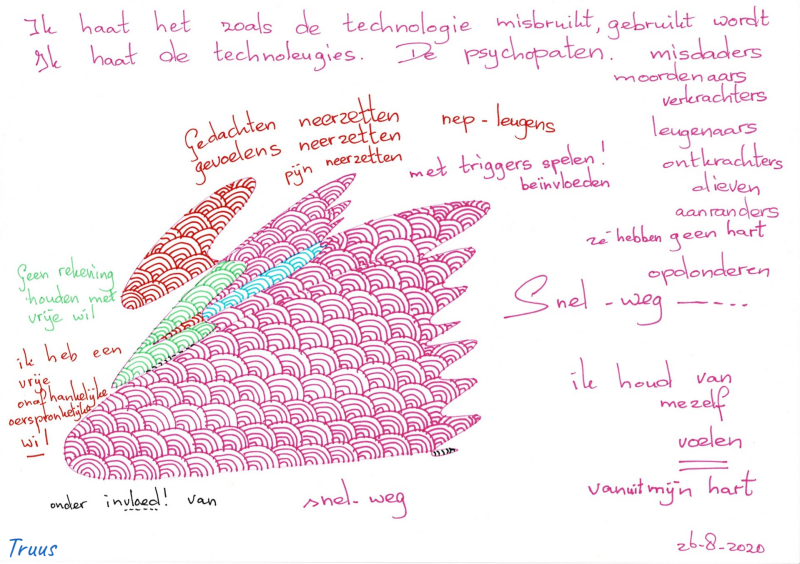 Ik haat het zoals de technologie misbruikt, gebruikt wordt
Ik haat de technoleugies. De psychopaten. misdaders
moordenaars
verkrachters
leugenaars
ontkrachters
dieven
aanranders
ze hebben geen hart
opdonderen
Gedachten neerzetten
gevoelens neerzetten
pijn neerzetten
nep-leugens
met triggers spelen!
beïnvloeden
Snel-weg
Geen rekening
houden met
vrije wil
ik heb een
vrije
onafhankelijke
oerspronkelijke
wil
ik houd van
mezelf
voelen
vanuit mijn hart
onder invloed! van
snel-weg
26-8-2020
Truus